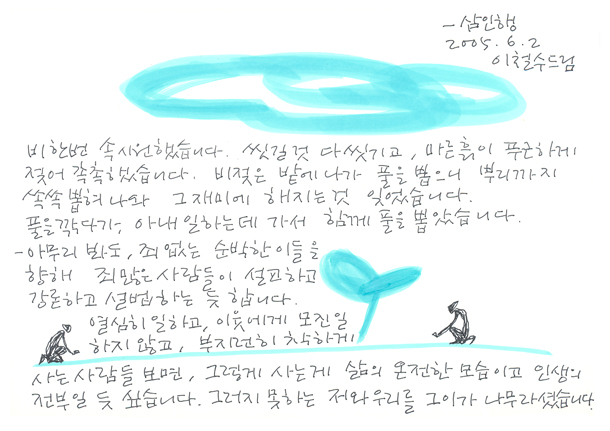 - 삼인행
2005. 6. 2
이철수드림
비한번 속시원했습니다. 씻길것 다씻기고, 마른흙이 푸근하게
젖어 촉촉했습니다. 비젖은 밭에나가 풀을 뽑으니 뿌리까지
쏙쏙뽑혀나와 그재미에 해지는것 잊었습니다.
풀을깎다가, 아내일하는데 가서 함께 풀을 뽑았습니다.
- 아무리 봐도, 죄없는 순박한이들을
향해 죄많은사람들이 설교하고
강론하고 설법하는 듯 합니다.
열심히일하고, 이웃에게 모진일
하지 않고, 부지런히 착수하게
사는사람들 보면, 그렇게 사는게 삶의 온전한 모습이고 인생의
전부일 듯 싶습니다. 그러지 못하는 저와우리를 그이가 나무라셨습니다.